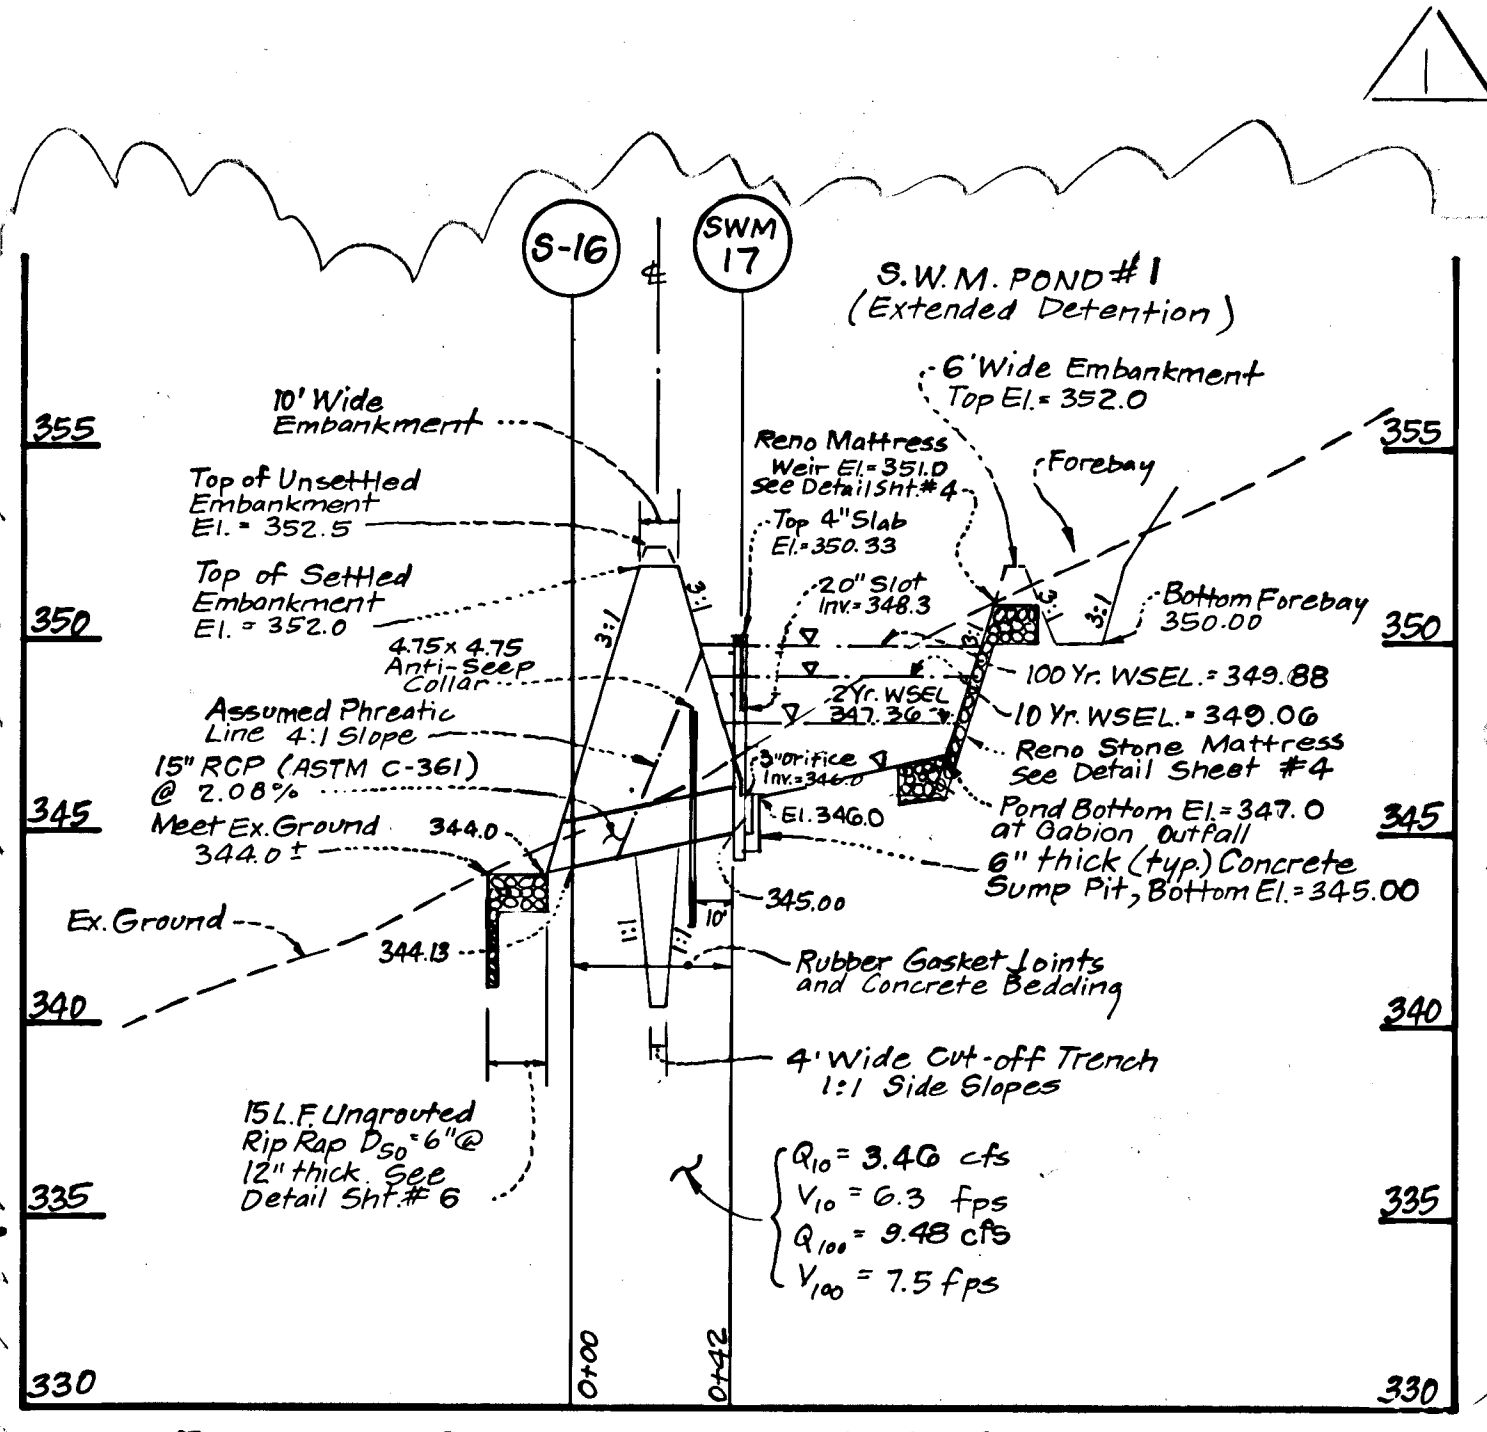 1
S-16
℄
SWM
17
S.W.M. POND #1
(Extended Detention)
6' Wide Embankment
Top El. = 352.0
10' Wide
Embankment
355
355
Reno Mattress
Weir El. = 351.0
See Detail Sht. #4
Forebay
Top of Unsettled
Embankment
El. = 352.5
Top 4" Slab
El. = 350.33
Top of Settled
Embankment
El. = 352.0
20" Slot
Inv. = 348.3
3:1
3:1
3:1
3:1
3:1
Bottom Forebay
350.00
350
350
4.75 x 4.75
Anti-Seep
Collar
100 Yr. WSEL. = 349.88
2 Yr. WSEL
347.36
10 Yr. WSEL. = 349.06
Assumed Phreatic
Line 4:1 Slope
Reno Stone Mattress
See Detail Sheet #4
15" RCP (ASTM C-361)
@ 2.08%
3" Orifice
Inv. = 346.0
El. 346.0
Pond Bottom El. = 347.0
at Gabion Outfall
345
345
Meet Ex. Ground
344.0 ±
344.0
6" thick (typ.) Concrete
Sump Pit, Bottom El. = 345.00
345.00
10'
Ex. Ground
344.13
1:1
1:1
Rubber Gasket Joints
and Concrete Bedding
340
340
4' Wide Cut-off Trench
1:1 Side Slopes
15 L.F. Ungrouted
Rip Rap D50 = 6" @
12" thick. See
Detail Sht. # 6
Q10 = 3.46 cfs
V10 = 6.3 fps
Q100 = 9.48 cfs
V100 = 7.5 fps
335
335
0+00
0+42
330
330